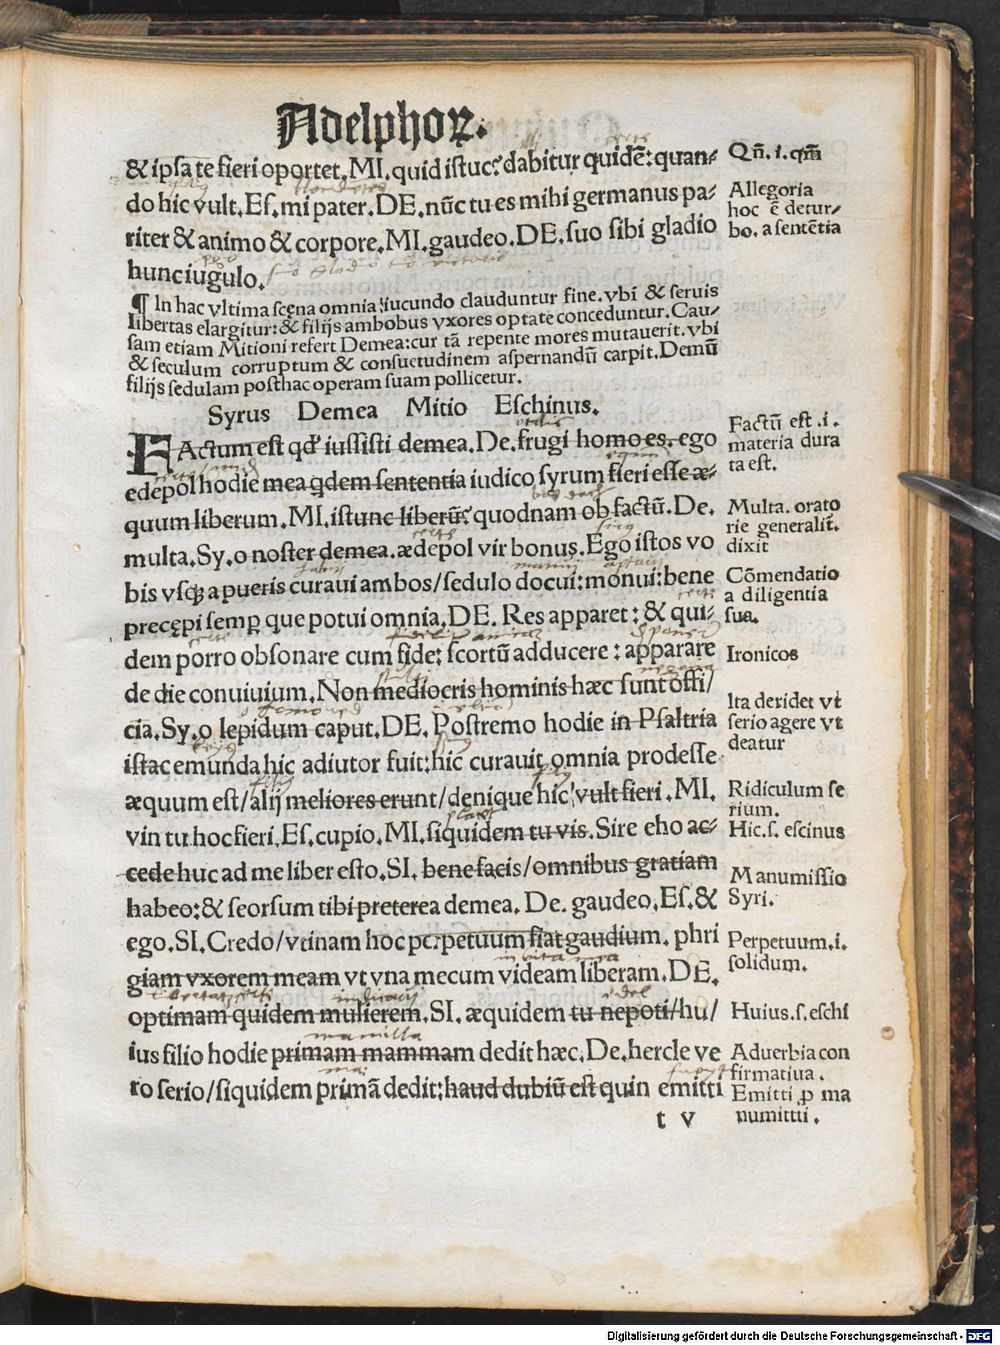 Adelphoꝝ.
& ipsa te fieri oportet. MI. quid istuc? dabitur quidē: quan⸗
do hic vult. Es. mi pater. DE. nūc tu es mihi germanus pa⸗
riter & animo & corpore. MI. gaudeo. DE. suo sibi gladio
hunc iugulo.
¶ In hac vltima scęna omnia iucundo clauduntur fine. vbi & seruis
libertas elargitur: & filijs ambobus vxores optate conceduntur. Cau⸗
sam etiam Mitioni refert Demea: cur tā repente mores mutauerit. vbi
& seculum corruptum & consuetudinem aspernandū carpit. Demū
filijs sedulam posthac operam suam pollicetur.
Syrus Demea Mitio Eschinus.
FActum est qd' iussisti demea. De. frugi homo es. ego
edepol hodie mea qdem sententia iudico syrum fieri esse æ⸗
quum liberum. MI. istunc liberū? quodnam ob factū. De.
multa. Sy. o noster demea. ædepol vir bonus. Ego istos vo
bis vsqꝫ a pueris curaui ambos/sedulo docui: monui: bene
precępi semp que potui omnia. DE. Res apparet: & qui⸗
dem porro obsonare cum fide: scortū adducere: apparare
de die conuiuium. Non mediocris hominis hæc sunt offi/
cia. Sy. o lepidum caput. DE. Postremo hodie in Psaltria
istac emunda hic adiutor fuit: hic curauit omnia prodesse
æquum est/alij meliores erunt/denique hic vult fieri. MI.
vin tu hoc fieri. Es. cupio. MI. siquidem tu vis. Sire eho ac⸗
cede huc ad me liber esto. SI. bene facis/omnibus gratiam
habeo: & seorsum tibi preterea demea. De. gaudeo. Es. &
ego. SI. Credo/vtinam hoc perpetuum fiat gaudium. phri
giam vxorem meam vt vna mecum videam liberam. DE.
optimam quidem mulierem. SI. æquidem tu nepoti/hu/
ius filio hodie primam mammam dedit hæc. De. hercle ve
ro serio/siquidem primā dedit: haud dubiū est quin emitti
t v
Qñ. i. qm̄
Allegoria
hoc ē detur⸗
bo. a sentētia
Factū est .i.
materia dura
ta est.
Multa. orato
rie generalit̄.
dixit
Cōmendatio
a diligentia
sua.
Ironicos
Ita deridet vt
serio agere vt
deatur
Ridiculum se
rium.
Hic. s. escinus
Manumissio
Syri.
Perpetuum. i.
solidum.
Huius. s. eschi
Aduerbia con
firmatiua.
Emitti ꝓ ma
numitti.
Digitalisierung gefördert durch die Deutsche Forschungsgemeinschaft - DFG